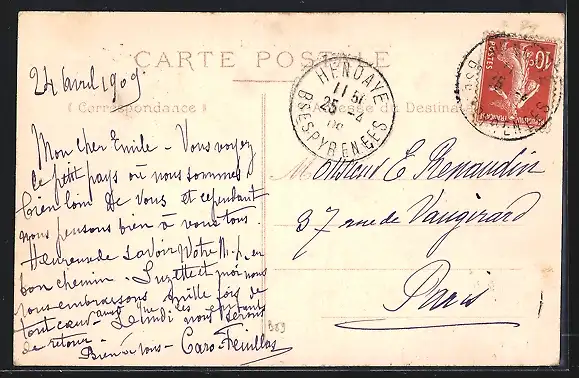 CARTE POSTALE
24 avril 1909.
(Correspondance)
Adresse du Destinataire
HENDAYE
11 15
25 -4
09
BSES PYRENEES
10c
POSTES
Mon cher Emile - Vous voyez
le petit pays où nous sommes
bien loin de vous et cependant
nous pensons bien à vous tous
Heureuse de savoir votre M. p. en
bon chemin. Suzette et moi nous
vous embrassons mille fois de
tout cœur ainsi que les enfants
Lundi nous serons
de retour -
Bien à vous - Caro-Feuillas
Monsieur E Renaudin
37 rue de Vaugirard
Paris
B89